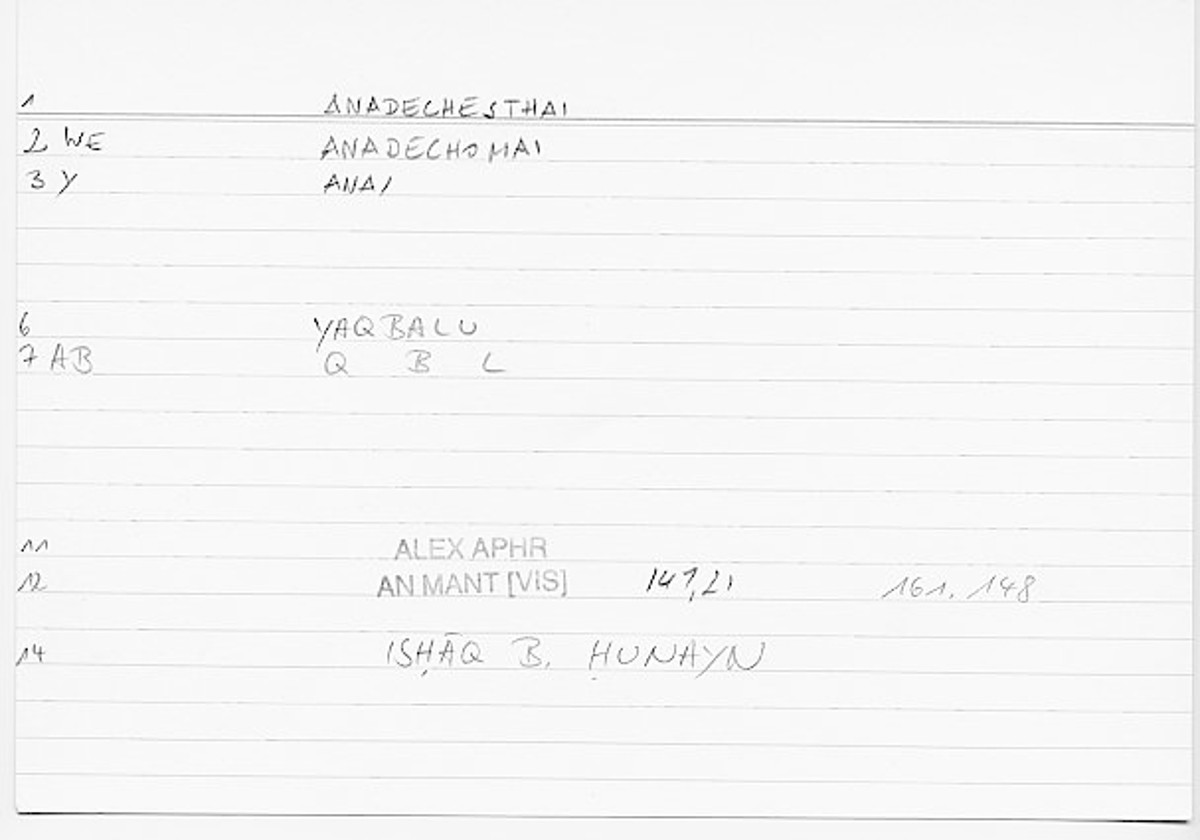 1 ANADECHESTHAI
2 WE ANADECHOMAI
3 Y ANA/
6 YAQBALU
7 AB Q B L
11 ALEX APHR
12 AN MANT [VIS] 141,21 161, 148
14 ISḤĀQ B. ḤUNAYN